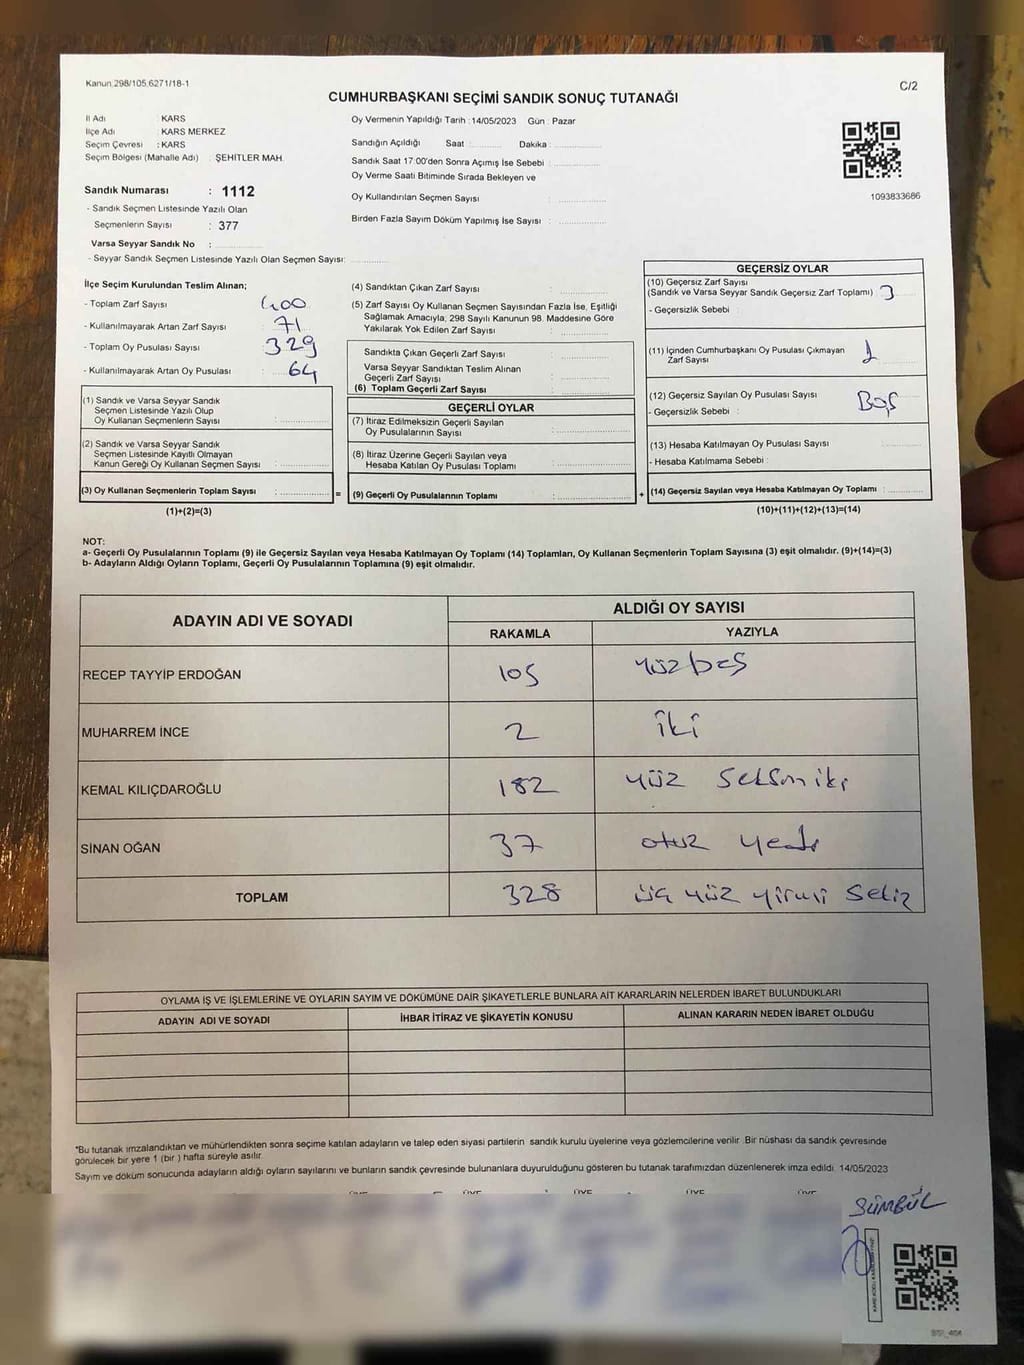 Kanun.298/105.6271/18-1
C/2
CUMHURBAŞKANI SEÇİMİ SANDIK SONUÇ TUTANAĞI
İl Adı : KARS
İlçe Adı : KARS MERKEZ
Seçim Çevresi : KARS
Seçim Bölgesi (Mahalle Adı) : ŞEHİTLER MAH.
Sandık Numarası : 1112
- Sandık Seçmen Listesinde Yazılı Olan
Seçmenlerin Sayısı : 377
Varsa Seyyar Sandık No :
- Seyyar Sandık Seçmen Listesinde Yazılı Olan Seçmen Sayısı:
Oy Vermenin Yapıldığı Tarih : 14/05/2023 Gün : Pazar
Sandığın Açıldığı Saat : Dakika :
Sandık Saat 17:00'den Sonra Açımış İse Sebebi :
Oy Verme Saati Bitiminde Sırada Bekleyen ve
Oy Kullandırılan Seçmen Sayısı :
Birden Fazla Sayım Döküm Yapılmış İse Sayısı :
1093833686
İlçe Seçim Kurulundan Teslim Alınan;
- Toplam Zarf Sayısı : 400
- Kullanılmayarak Artan Zarf Sayısı : 71
- Toplam Oy Pusulası Sayısı : 329
- Kullanılmayarak Artan Oy Pusulası : 64
(1) Sandık ve Varsa Seyyar Sandık
Seçmen Listesinde Yazılı Olup
Oy Kullanan Seçmenlerin Sayısı :
(2) Sandık ve Varsa Seyyar Sandık
Seçmen Listesinde Kayıtlı Olmayan
Kanun Gereği Oy Kullanan Seçmen Sayısı :
(3) Oy Kullanan Seçmenlerin Toplam Sayısı :
(1)+(2)=(3)
(4) Sandıktan Çıkan Zarf Sayısı :
(5) Zarf Sayısı Oy Kullanan Seçmen Sayısından Fazla İse, Eşitliği
Sağlamak Amacıyla; 298 Sayılı Kanunun 98. Maddesine Göre
Yakılarak Yok Edilen Zarf Sayısı :
Sandıkta Çıkan Geçerli Zarf Sayısı :
Varsa Seyyar Sandıktan Teslim Alınan
Geçerli Zarf Sayısı :
(6) Toplam Geçerli Zarf Sayısı :
GEÇERLİ OYLAR
(7) İtiraz Edilmeksizin Geçerli Sayılan
Oy Pusulalarının Sayısı :
(8) İtiraz Üzerine Geçerli Sayılan veya
Hesaba Katılan Oy Pusulası Toplamı :
= (9) Geçerli Oy Pusulalarının Toplamı :
GEÇERSİZ OYLAR
(10) Geçersiz Zarf Sayısı
(Sandık ve Varsa Seyyar Sandık Geçersiz Zarf Toplamı) : 3
- Geçersizlik Sebebi :
(11) İçinden Cumhurbaşkanı Oy Pusulası Çıkmayan
Zarf Sayısı
(12) Geçersiz Sayılan Oy Pusulası Sayısı : Boş
- Geçersizlik Sebebi :
(13) Hesaba Katılmayan Oy Pusulası Sayısı :
- Hesaba Katılmama Sebebi :
+ (14) Geçersiz Sayılan veya Hesaba Katılmayan Oy Toplamı :
(10)+(11)+(12)+(13)=(14)
NOT:
a- Geçerli Oy Pusulalarının Toplamı (9) ile Geçersiz Sayılan veya Hesaba Katılmayan Oy Toplamı (14) Toplamları, Oy Kullanan Seçmenlerin Toplam Sayısına (3) eşit olmalıdır. (9)+(14)=(3)
b- Adayların Aldığı Oyların Toplamı, Geçerli Oy Pusulalarının Toplamına (9) eşit olmalıdır.
ADAYIN ADI VE SOYADI ALDIĞI OY SAYISI
RAKAMLA YAZIYLA
RECEP TAYYİP ERDOĞAN 105 yüzbeş
MUHARREM İNCE 2 iki
KEMAL KILIÇDAROĞLU 182 yüz seksen iki
SİNAN OĞAN 37 otuz yedi
TOPLAM 328 üç yüz yirmi sekiz
OYLAMA İŞ VE İŞLEMLERİNE VE OYLARIN SAYIM VE DÖKÜMÜNE DAİR ŞİKAYETLERLE BUNLARA AİT KARARLARIN NELERDEN İBARET BULUNDUKLARI
ADAYIN ADI VE SOYADI İHBAR İTİRAZ VE ŞİKAYETİN KONUSU ALINAN KARARIN NEDEN İBARET OLDUĞU
*Bu tutanak imzalandıktan ve mühürlendikten sonra seçime katılan adayların ve talep eden siyasi partilerin sandık kurulu üyelerine veya gözlemcilerine verilir. Bir nüshası da sandık çevresinde
görülecek bir yere 1 (bir ) hafta süreyle asılır.
Sayım ve döküm sonucunda adayların aldığı oyların sayılarını ve bunların sandık çevresinde bulunanlara duyurulduğunu gösteren bu tutanak tarafımızdan düzenlenerek imza edildi. 14/05/2023
ÜYE ÜYE ÜYE ÜYE ÜYE
SÜMBÜL